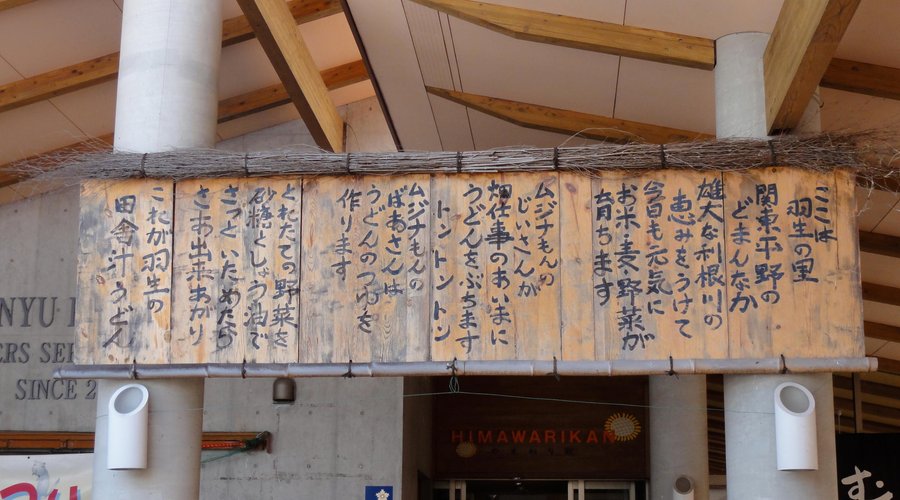 ここは
羽生の里
関東平野の
どまんなか
雄大な利根川の
恵みをうけて
今日も元気に
お米・麦・野菜が
育ちます
ムジナもんの
じいさんが
畑仕事のあいまに
うどんをぶちます
トントントン
ムジナもんの
ばあさんは
うどんのつゆを
作ります
とれたての野菜を
砂糖としょう油で
さっといためたら
さあお出来あがり
これが羽生の
田舎汁うどん
NYU
ERS SER
SINCE 2
HIMAWARIKAN